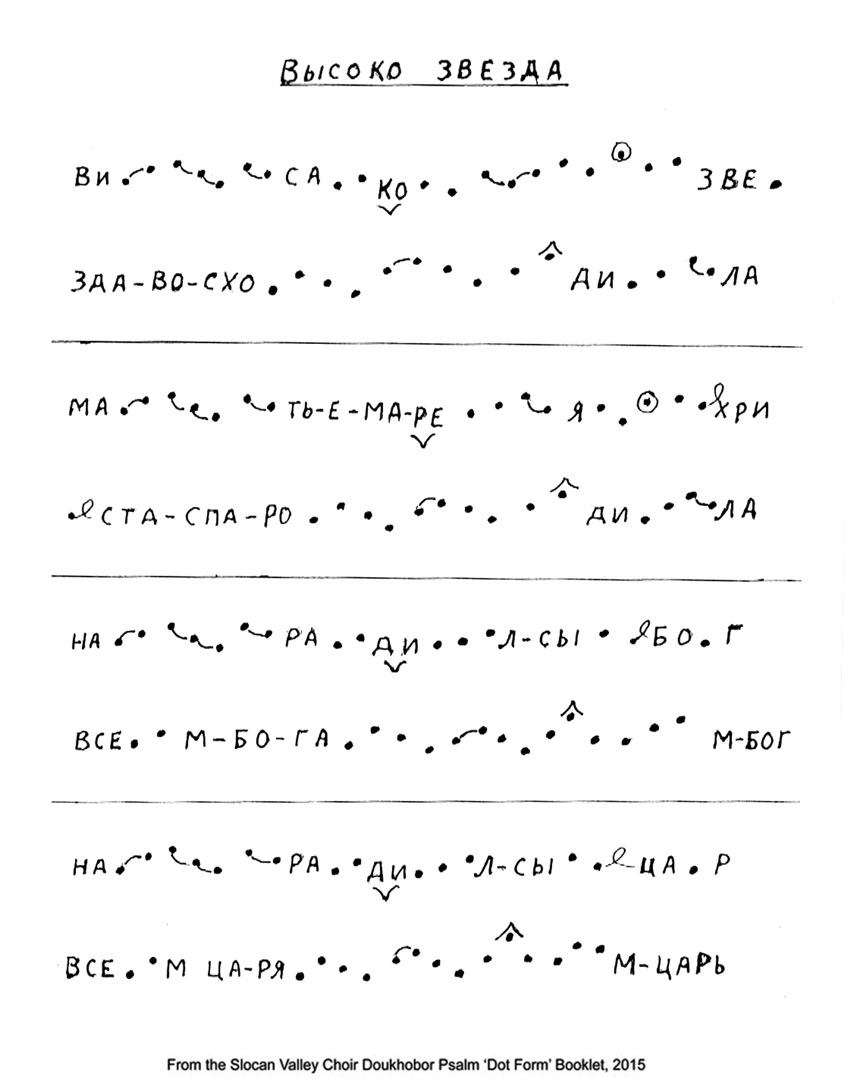 ВЫСОКО ЗВЕЗДА
ВИ СА КО ЗВЕ
ЗДА-ВО-СХО ДИ ЛА
МА ТЬ-Е-МА-РЕ Я ХРИ
СТА-СПА-РО ДИ ЛА
НА РА ДИ Л-СЫ БО Г
ВСЕ М-БО-ГА М-БОГ
НА РА ДИ Л-СЫ ЦА Р
ВСЕ М ЦА-РЯ М-ЦАРЬ
From the Slocan Valley Choir Doukhobor Psalm 'Dot Form' Booklet, 2015